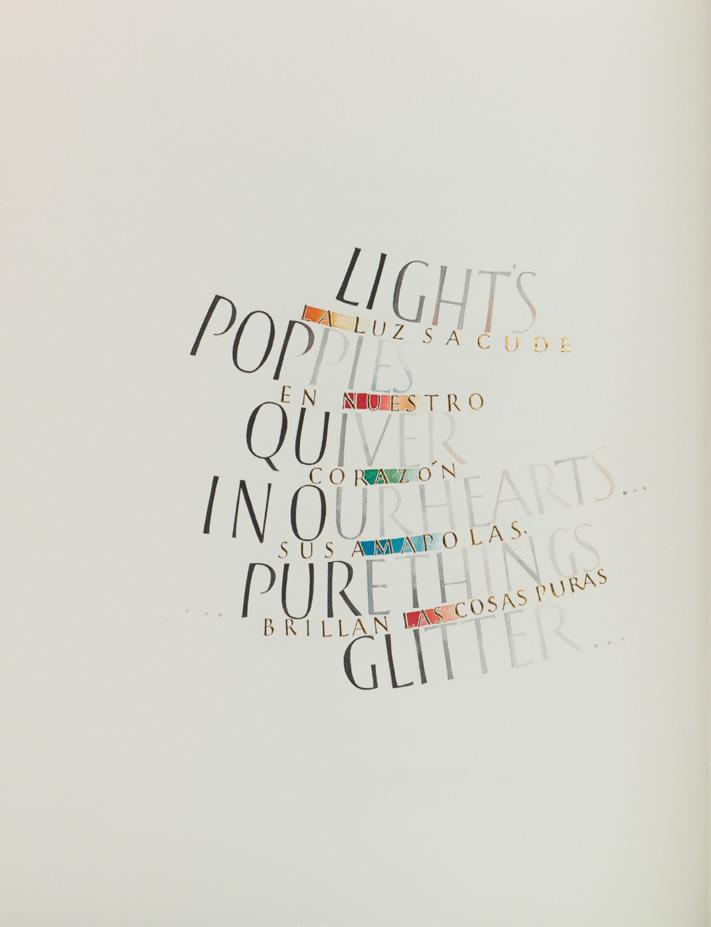 LIGHT'S
LA LUZ SACUDE
POPPIES
EN NUESTRO
QUIVER
CORAZÓN
IN OUR HEARTS...
SUS AMAPOLAS.
PURE THINGS
...BRILLAN LAS COSAS PURAS
GLITTER...